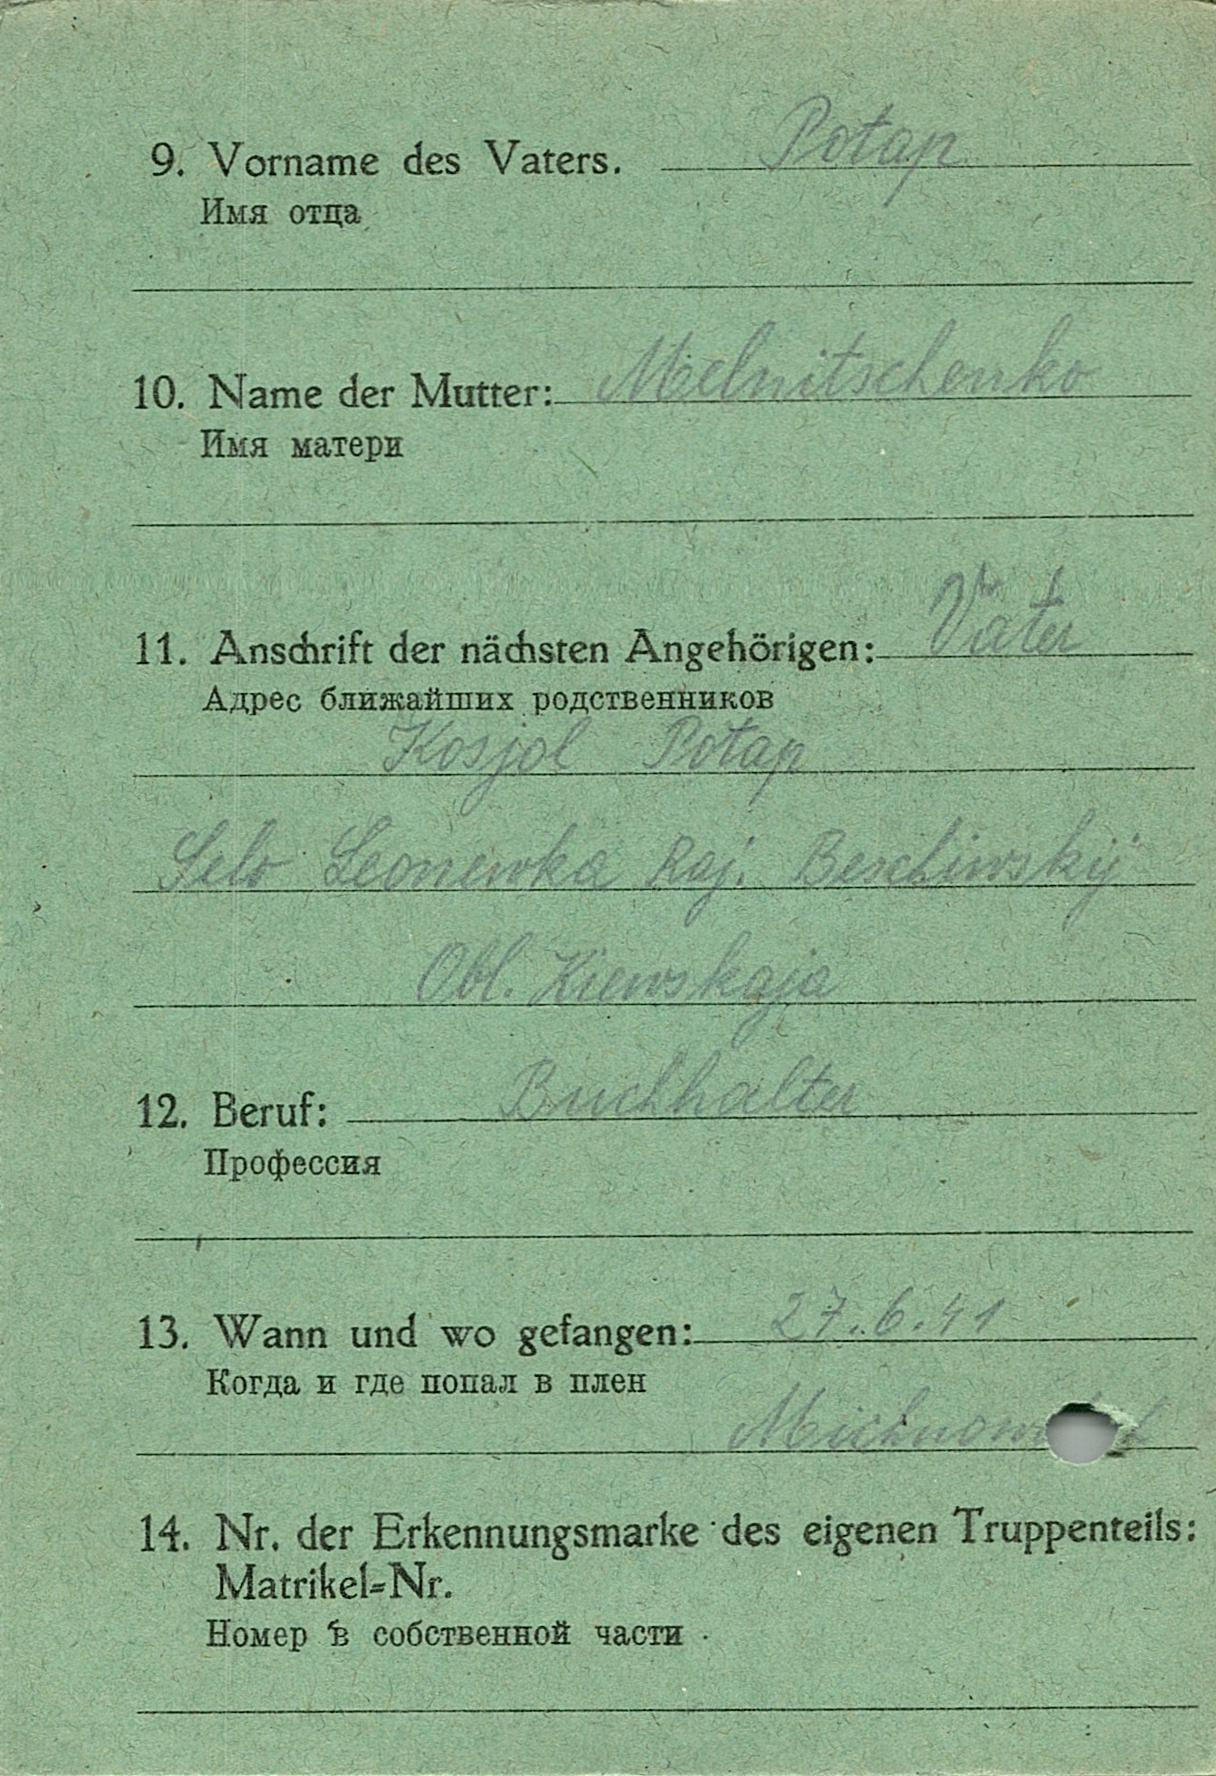 9. Vorname des Vaters. Potap
Имя отца
10. Name der Mutter: Melnitschenko
Имя матери
11. Anschrift der nächsten Angehörigen: Vater
Адрес ближайших родственников
Kosjol Potap
Selo Leonewka Raj.
Obl. Kiewskaja
12. Beruf: Buchhalter
Профессия
13. Wann und wo gefangen: 27.6.41
Когда и где попал в плен
14. Nr. der Erkennungsmarke des eigenen Truppenteils:
Matrikel-Nr.
Номер в собственной части